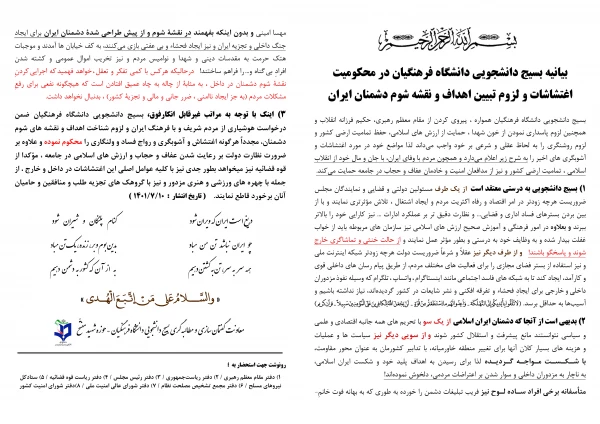 بسم الله الرحمن الرحیم
بیانیه بسیج دانشجویی دانشگاه فرهنگیان در محکومیت
اغتشاشات و لزوم تبیین اهداف و نقشه شوم دشمنان ایران
بسیج دانشجویی دانشگاه فرهنگیان همواره ، پیروی کردن از مقام معظم رهبری، حکیم فرزانه انقلاب و
همچنین لزوم پاسداری نمودن از خون شهدا ، حمایت از ارزش های اسلامی، حفظ تمامیت ارضی کشور و
لزوم روشنگری را به لحاظ عقلی و شرعی بر خود واجب می‌داند لذا مواضع خود در مورد اغتشاشات و
آشوبگری های اخیر را به شرح زیر اعلام می‌دارد و همچون مردم با وفای ایران، با جان و مال خود از انقلاب
اسلامی ، تمامیت ارضی کشور و نیز از مدافعان امنیت و خادمان عفاف و حجاب در جامعه حمایت می‌کند.
۱) بسیج دانشجویی به درستی معتقد است از یک طرف مسئولین دولتی و قضایی و نمایندگان مجلس
ضروریست هرچه زودتر در امر اقتصاد و رفاه اکثریت مردم و ایجاد اشتغال ، تلاش مؤثرتری نمایند و با از
بین بردن بسترهای فساد اداری و قضایی.. و نظارت دقیق تر بر عملکرد ادارات .. نیز کارایی خود را بالاتر
ببرند و بعلاوه در امور فرهنگی و آموزش صحیح ارزش های اسلامی نیز سازمان های مربوطه باید از خواب
غفلت بیدار شده و به وظایف خود به درستی و بطور مؤثر عمل نمایند و از حالت خنثی و تماشاگری خارج
شوند و پاسخگو باشند! و از طرف دیگر نیز عقلاً و شرعاً ضروریست دولت هرچه زودتر شبکه اینترنت ملی
و نیز استفاده از بستر فضای مجازی را برای فعالیت های مختلف مردم، از طریق پیام رسان های داخلی قوی
و کارآمد، ایجاد کند تا به شبکه های فاسد اجتماعی مانند اینستاگرام، واتساپ ، تلگرام که وسیله نفوذ دشمنان
داخلی و خارجی برای ایجاد فحشاء و تفرقه افکنی و نشر شایعات در کشور گردیده‌اند، نیاز نداشته باشیم و
آسیب‌ها به حداقل برسد.
۲) بدیهی است از آنجا که دشمنان ایران اسلامی از یک سو با تحریم های همه جانبه اقتصادی و علمی
و سیاسی نتوانستند مانع پیشرفت و استقلال کشور شوند و از سویی دیگر نیز سیاست ها و عملیات
و هزینه های بسیار کلان آنها برای تغییر منطقه خاورمیانه، با تدابیر کشورمان به عنوان محور مقاومت،
با شکست مواجه گردیده لذا برای رسیدن به اهداف پلید خود و شکست ایران اسلامی،
به ناچار به مزدوران داخلی و سوار شدن بر اعتراضات مردمی، دلخوش نموده‌اند!
متأسفانه برخی افراد ساده لوح نیز فریب تبلیغات دشمن را خورده به طوری که به بهانه فوت خانم-
مهسا امینی و بدون اینکه بفهمند در نقشۀ شوم و از پیش طراحی شدۀ دشمنان ایران برای ایجاد
جنگ داخلی و تجزیه ایران و نیز ایجاد فحشاء و بی عفتی بازی می‌کنند، به کف خیابان ها آمدند و موجبات
هتک حرمت به مقدسات دینی و شهدا و نوامیس مردم و نیز تخریب اموال عمومی و کشته شدن
افراد بی گناه و...را فراهم ساختند! درحالیکه هرکس با کمی تفکر و تعقل، خواهد فهمید که اجرایی کردن
نقشه‌ی دشمنان در داخل ، به مثابۀ از چاله به چاه عمیق افتادن است که هیچگونه نفعی برای رفع
مشکلات مردم (به جز ایجاد ناامنی ، ضرر جانی و مالی و تجزیۀ کشور) ، بدنبال نخواهد داشت.
۳) اینک با توجه به مراتب غیرقابل انکارفوق، بسیج دانشجویی دانشگاه فرهنگیان ضمن
درخواست هوشیاری از مردم شریف و با فرهنگ ایران و لزوم شناخت اهداف و نقشه های شوم
دشمنان، مجدداً هرگونه اغتشاش و آشوبگری و رواج فساد و ولنگاری را محکوم نموده و علاوه بر
ضرورت نظارت دولت بر رعایت شدن عفاف و حجاب و ارزش های اسلامی در جامعه ، مؤکدا از
قوه قضائیه نیز میخواهد بطور جدی نیز با کلیه عوامل اصلی این اغتشاشات در داخل و خارج ، از
جمله با چهره های ورزشی و هنری مزدور و نیز با گروهک های تجزیه طلب و منافقین و حامیان
آنان برخورد قاطع نمایند. ( تاریخ انتشار : ۱۴۰۱/۷/۱۰ )
دریغ است ایران که ویران شود
کنام پلنگان و شیران شود
چو ایران نباشد تن من مباد
بدین بوم و بر زنده یک تن مباد
همه سر به سر تن به کشتن دهیم
به از آن که کشور به دشمن دهیم
«والسلام علی من اتبع الهدی»
معاونت گفتمان سازی و مطالبه گری بسیج دانشجویی دانشگاه فرهنگیان - حوزه شهید مفتح
رونوشت جهت استحضار به :
۱) دفتر مقام معظم رهبری / ۲) دفتر ریاست‌جمهوری / ۳) دفتر رئیس مجلس / ۴) دفتر ریاست قوه قضائیه / ۵) ستادکل
نیروهای مسلح / ۶) دفتر مجمع تشخیص مصلحت نظام / ۷) دفتر شورای عالی امنیت ملی / ۸) دفتر شورای امنیت کشور